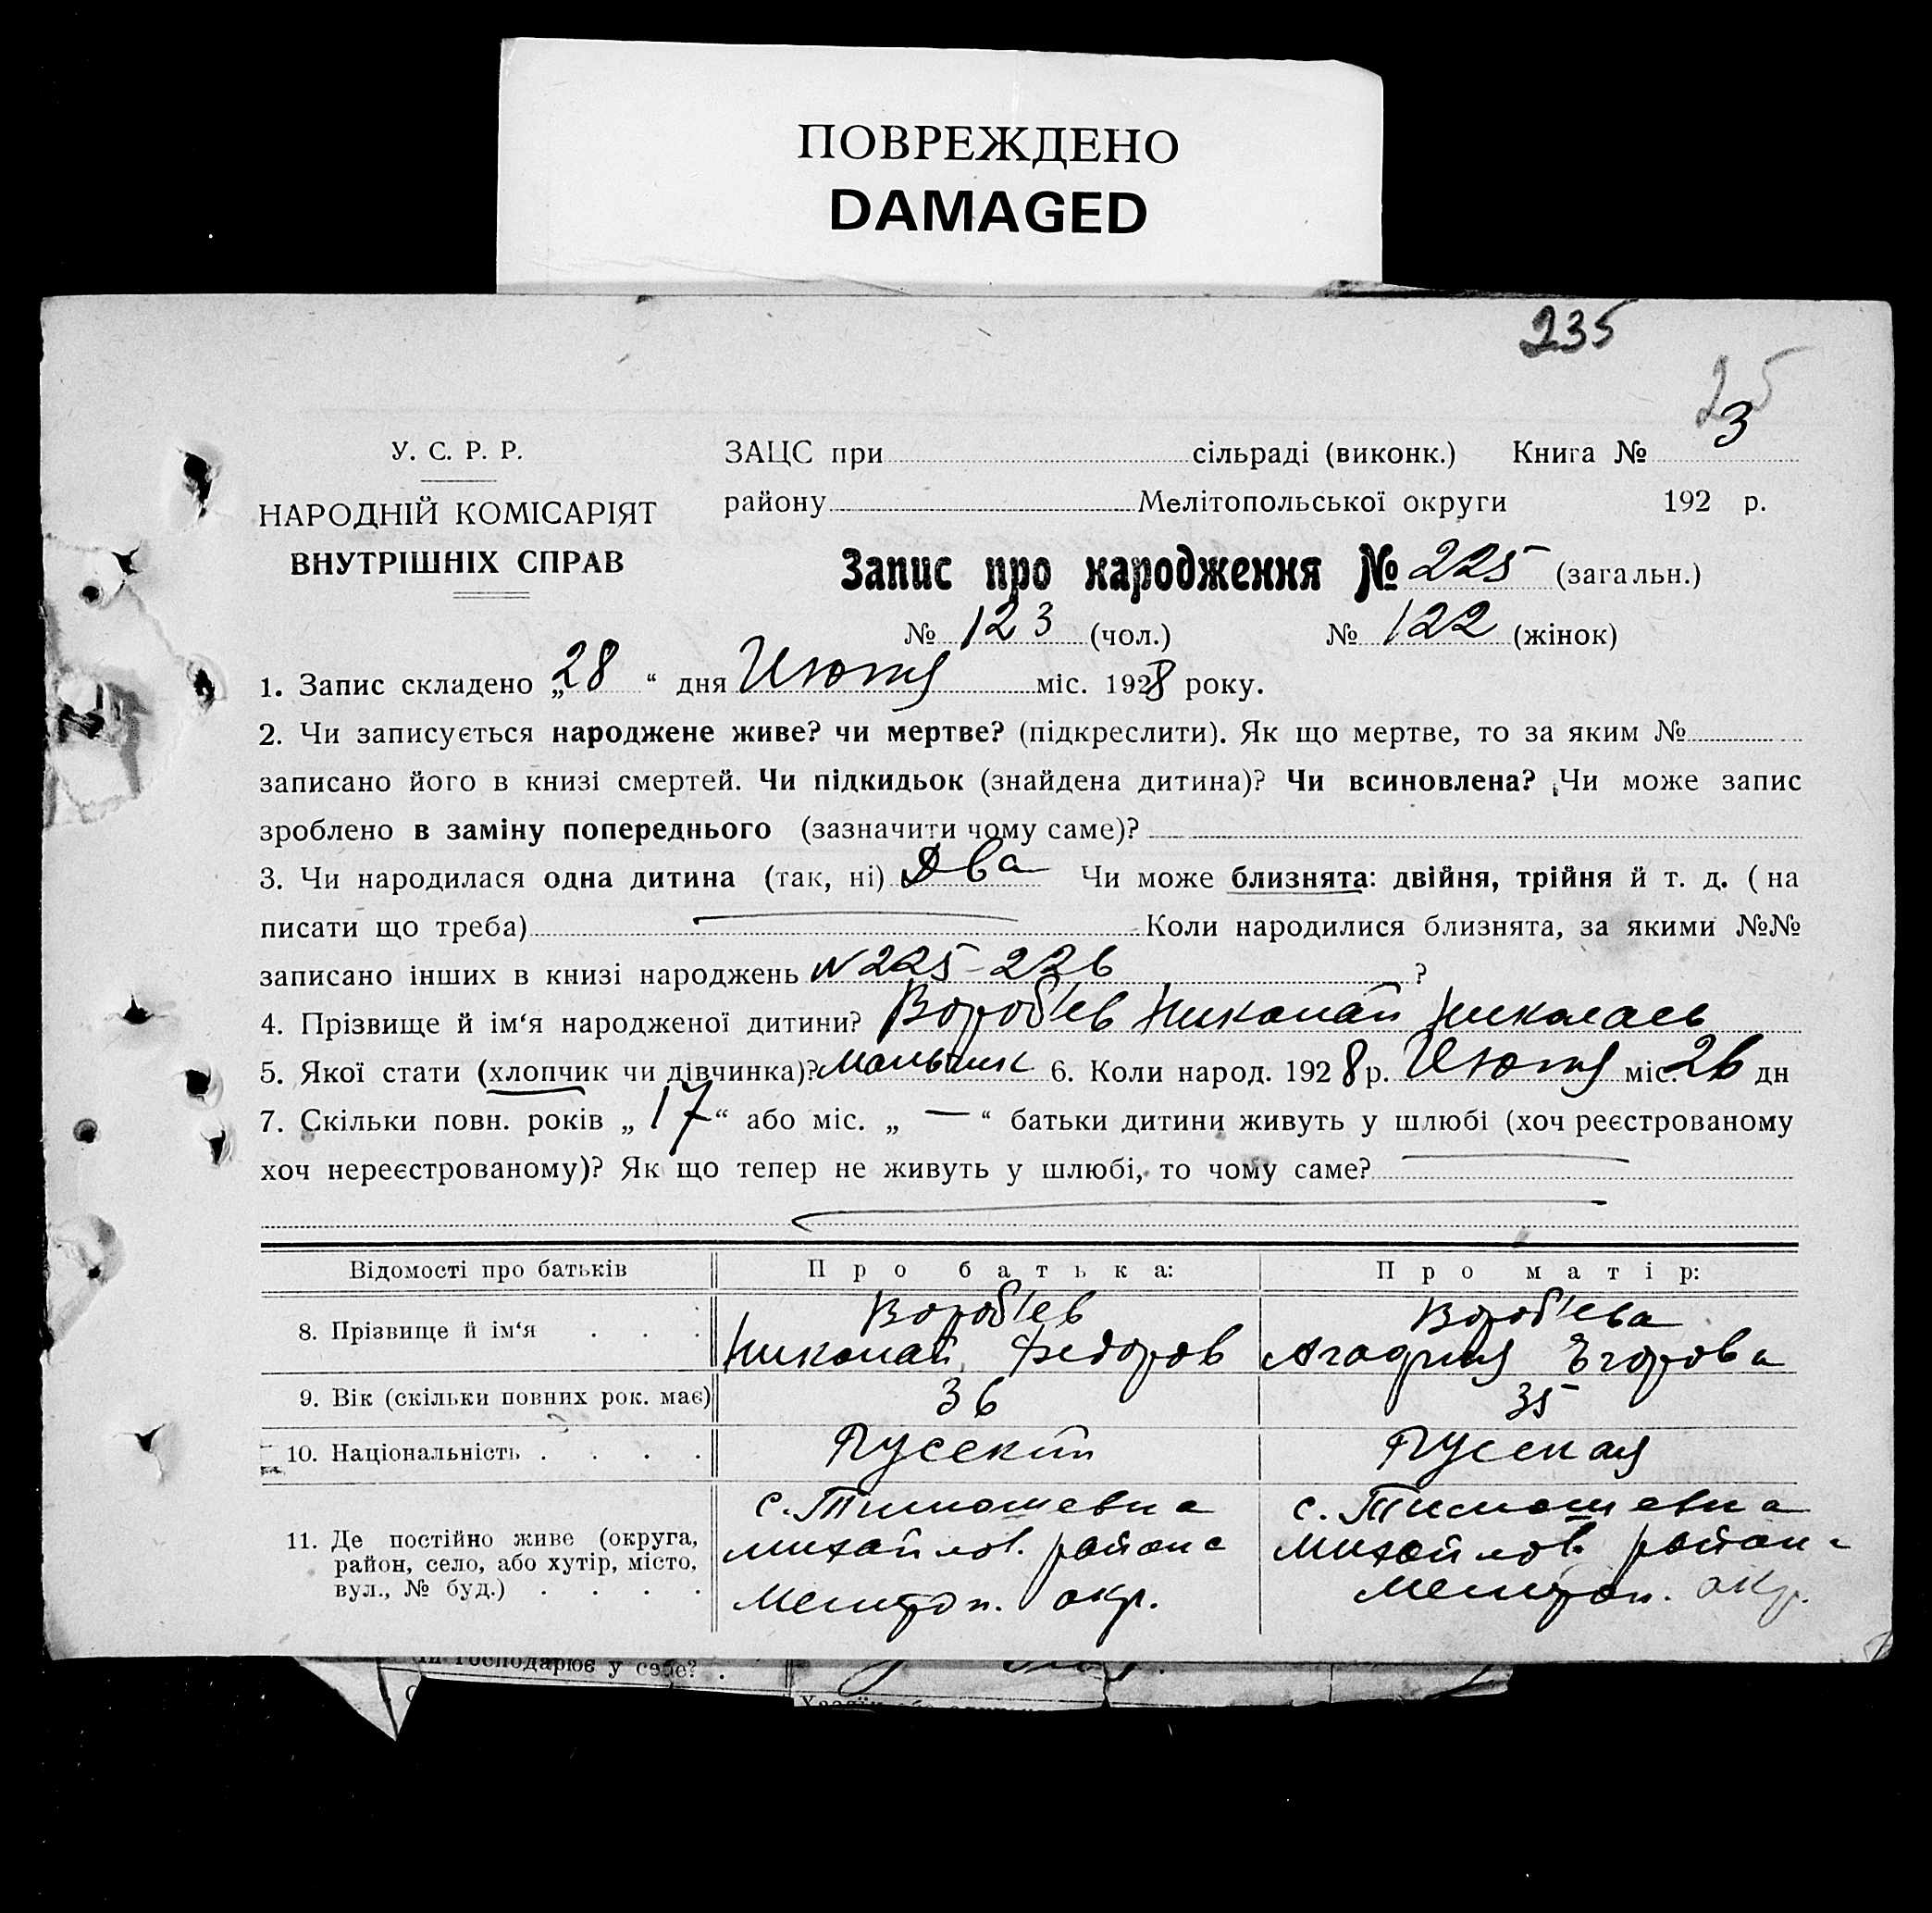 ПОВРЕЖДЕНО
DAMAGED
235
25
У. С. Р. Р.
НАРОДНІЙ КОМІСАРІЯТ
ВНУТРІШНІХ СПРАВ
ЗАЦС при сільраді (виконк.) Книга № 3
району Мелітопольської округи 192 р.
Запис про народження № 225 (загальн.)
№ 123 (чол.) № 122 (жінок)
1. Запис складено „28“ дня Июля міс. 1928 року.
2. Чи записується народжене живе? чи мертве? (підкреслити). Як що мертве, то за яким №
записано його в книзі смертей. Чи підкидьок (знайдена дитина)? Чи всиновлена? Чи може запис
зроблено в заміну попереднього (зазначити чому саме)?
3. Чи народилася одна дитина (так, ні) Два Чи може близнята: двійня, трійня й т. д. (на
писати що треба) — Коли народилися близнята, за якими №№
записано інших в книзі народжень № 225-226 ?
4. Прізвище й ім‘я народженої дитини? Вороб'ев Николай Николаев
5. Якої стати (хлопчик чи дівчинка)? Мальчик 6. Коли народ. 1928 р. Июля міс. 26 дн
7. Скільки повн. років „17“ або міс. „—“ батьки дитини живуть у шлюбі (хоч реєстрованому
хоч нереєстрованому)? Як що тепер не живуть у шлюбі, то чому саме? —
Відомості про батьків Про батька: Про матір:
8. Прізвище й ім‘я . . . Вороб'ев Николай Федоров Вороб'ева Егорова
9. Вік (скільки повних рок. має) 36 35
10. Національність . . . . Русский Русская
11. Де постійно живе (округа, район, село, або хутір, місто, вул., № буд.) . . . .
с. Тимошевка с. Тимошевка
Михайлов. района Михайлов. района
Мелитоп. окр. Мелитоп. окр.
господарює у себе? .